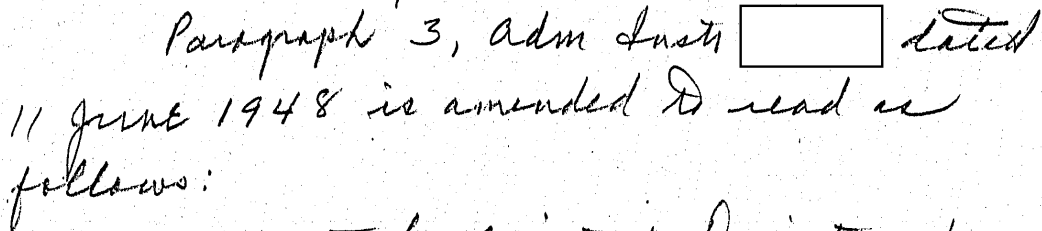 Paragraph 3, Adm Instr dated
11 June 1948 is amended to read as
follows: